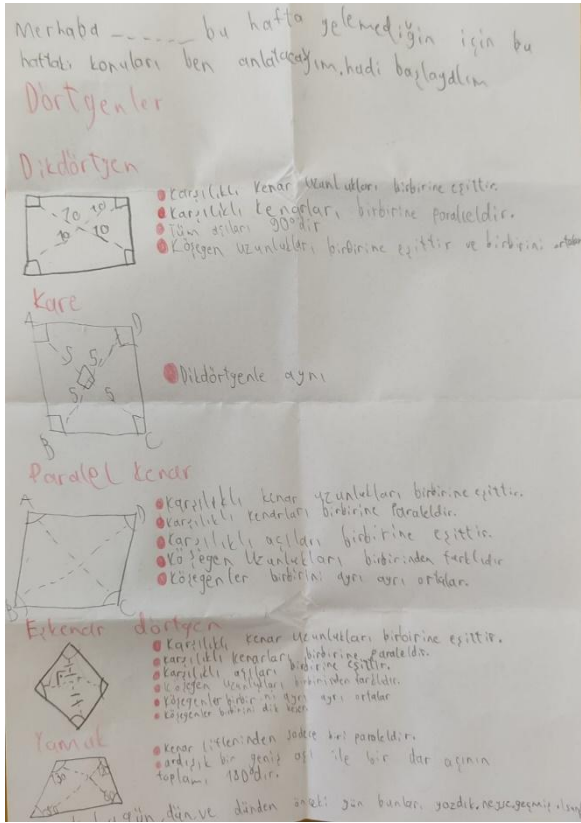 Merhaba ______ bu hafta gelemediğin için bu
haftaki konuları ben anlatacağım. hadi başlayalım
Dörtgenler
Dikdörtgen
Karşılıklı kenar uzunlukları birbirine eşittir.
Karşılıklı kenarları birbirine paraleldir.
Tüm açıları 90°dir
Köşegen uzunlukları birbirine eşittir ve birbirini ortalar
10 10
10 10
Kare
A D
5 5
5 5
B C
Dikdörtgenle aynı
Paralel kenar
A D
B C
Karşılıklı kenar uzunlukları birbirine eşittir.
Karşılıklı kenarları birbirine paraleldir.
Karşılıklı açıları birbirine eşittir.
Köşegen uzunlukları birbirinden farklıdır
Köşegenler birbirini ayrı ayrı ortalar.
Eşkenar dörtgen
Karşılıklı kenar uzunlukları birbirine eşittir.
Karşılıklı kenarları birbirine paraleldir.
Karşılıklı açıları birbirine eşittir.
Köşegen uzunlukları birbirinden farklıdır.
Köşegenler birbirini ayrı ayrı ortalar
Köşegenler birbirini dik keser
Yamuk
Kenar çiftlerinden sadece biri paraleldir.
ardışık bir geniş açı ile bir dar açının
toplamı 180°dir.
bugün, dün, ve dünden önceki gün bunları yazdık. neyse, geçmiş olsun